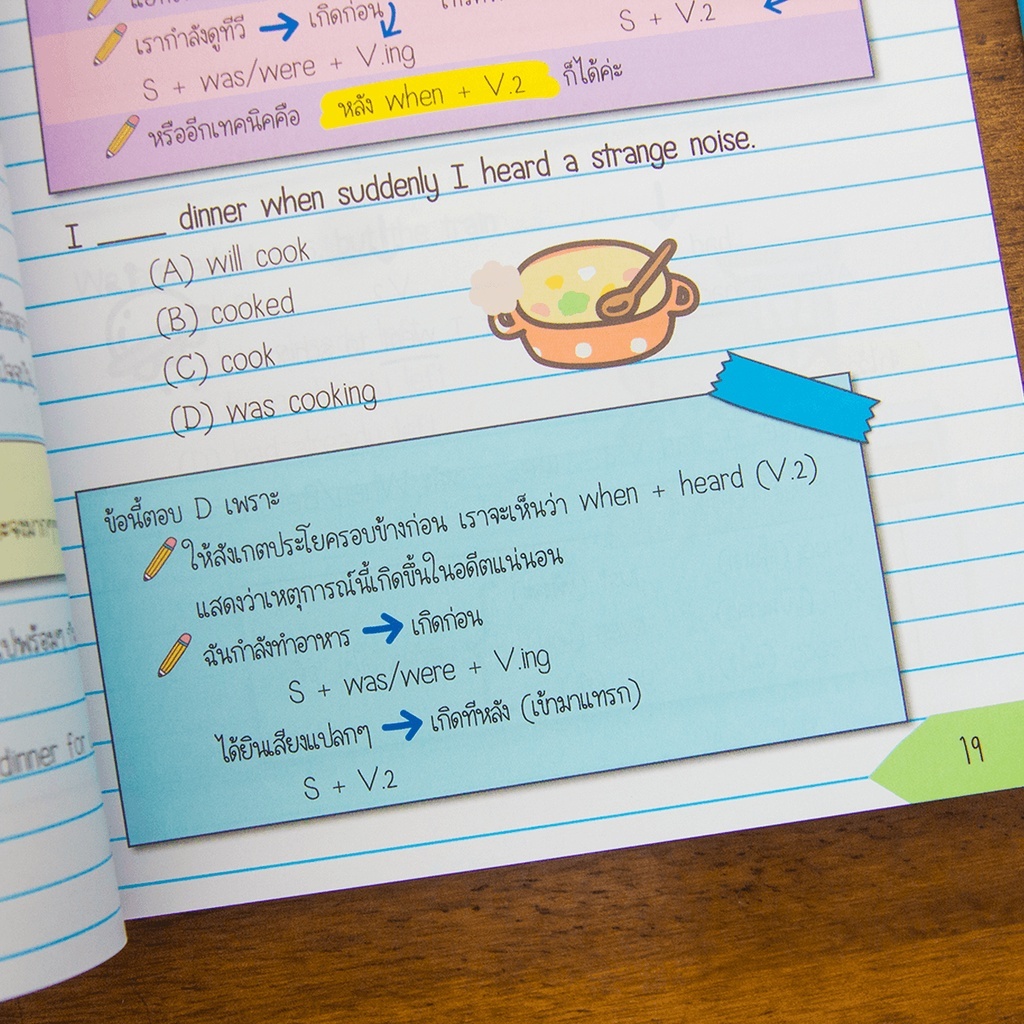 เรากำลังดูทีวี → เกิดก่อน
S + V.2
S + was/were + V.ing
หรืออีกเทคนิคคือ หลัง when + V.2 ก็ได้ค่ะ
I ____ dinner when suddenly I heard a strange noise.
(A) will cook
(B) cooked
(C) cook
(D) was cooking
ข้อนี้ตอบ D เพราะ
ให้สังเกตประโยครอบข้างก่อน เราจะเห็นว่า when + heard (V.2)
แสดงว่าเหตุการณ์นี้เกิดขึ้นในอดีตแน่นอน
ฉันกำลังทำอาหาร → เกิดก่อน
S + was/were + V.ing
ได้ยินเสียงแปลกๆ → เกิดทีหลัง (เข้ามาแทรก)
S + V.2
19
dinner for